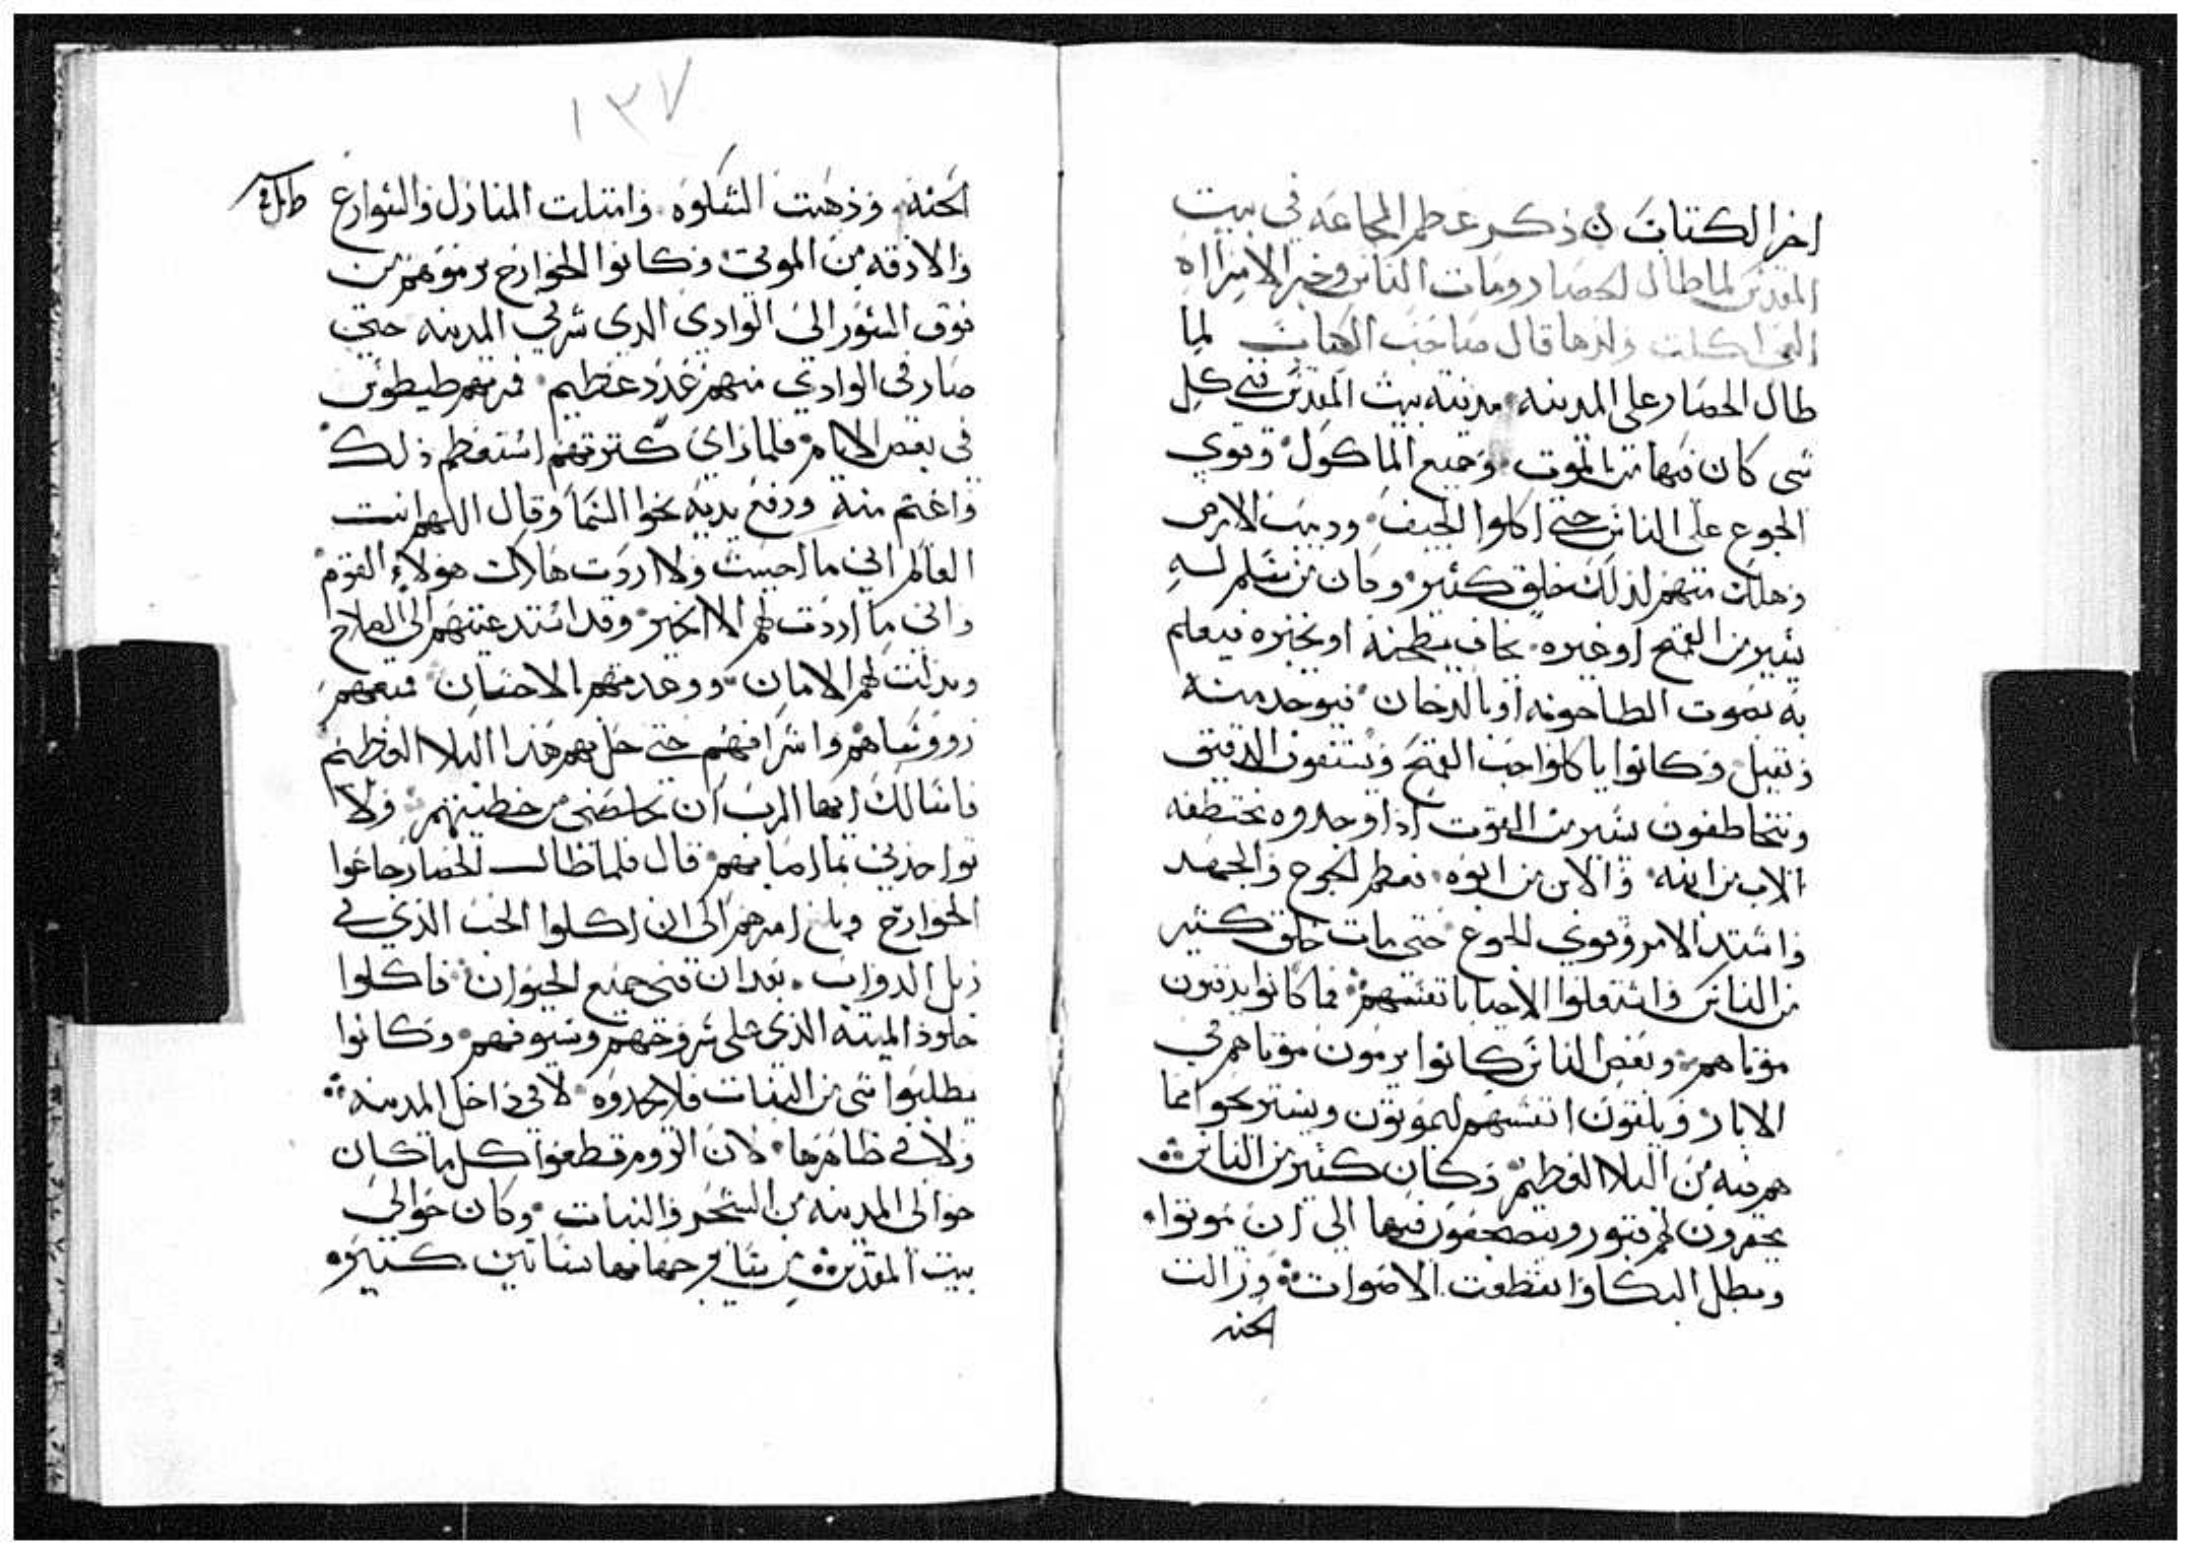 اخر الكتاب ن ذكر عظم المجاعه في بيت
المقدس لما طال الحصار ومات الناس وخبر الامراه
التي اكلت ولدها قال صاحب الكتاب لما
طال الحصار على المدينه مدينه بيت المقدس فني كل
شي كان فيها من القوت وجميع الماكول وقوي
الجوع على الناس حتي اكلوا الجيف ودبيب الارض
وهلك منهم لذلك خلق كثير وكان من يسلم له
يسير من القمح او غيره يخاف يطحنه او يخبزه فيعلم
به بصوت الطاحونه او بالدخان فيوخد منه
ويقتل وكانوا ياكلوا حب القمح ويستفون الدقيق
ويتخاطفون يسير من القوت اذا وجدوه يختطفه
الاب من ابنه والابن من ابوه فعظم الجوع والجهد
واشتد الامر وقوي الجوع حتى مات خلق كثير
من الناس واشتغلوا الاحيا بانفسهم فما كانوا يدفنون
موتاهم وبعض الناس كانوا يرمون موتاهم في
الابار ويلقون انفسهم ليموتون ويستريحوا مما
هم فيه من البلا العظيم وكان كثير من الناس
يحفرون لهم قبور ويضجعون فيها الي ان يموتوا
وبطل البكا وانقطعت الاصوات وزالت
الحنه
١٣٧
الحنه وذهبت الشكوه وامتلت المنازل والشوارع
والازقه من الموتى وكانوا الخوارج يرموهم من
فوق السور الى الوادي الدي شرقي المدينه حتى
صار في الوادي منهم عدد عظيم فمر بهم طيطوس
في بعض الايام فلما راي كترتهم استعظم ذلك
واغتم منه ورفع يديه نحو السما وقال اللهم انت
العالم اني ما احببت ولا اردت هلاك هولاء القوم
واني ما اردت لهم الا الخير وقد استدعيتهم الى الصلاح
وبدلت لهم الامان ووعدتهم بالاحسان فمنعهم
رووساهم واشرافهم حتى حل بهم هدا البلا العظيم
فاسالك ايها الرب ان تخلصني من خطيتهم ولا
تواخدني بما اصابهم قال فلما طال الحصار جاعوا
الخوارج وبلغ امرهم الى ان اكلوا الحب الذي في
زبل الدواب بعد ان فني جميع الحيوان فاكلوا
جلود الميته الذي على سروجهم وسيوفهم وكانوا
يطلبوا شي من النبات فلا يجدوه لا في داخل المدينه
ولا في ظاهرها لان الروم قطعوا كل ما كان
حوالى المدينه من الشجر والنبات وكان حوالى
بيت المقدس من ساير جهاتها بساتين كتيره